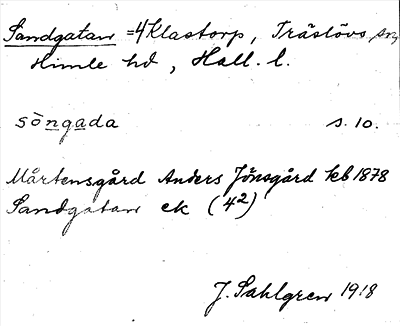 Sandgatan =4 Klastorp, Träslövs sn,
Himle hd, Hall. l.
söngada s. 10.
Mårtensgård Anders Jönsgård kb 1878
Sandgatan ek (4²)
J. Sahlgren 1918